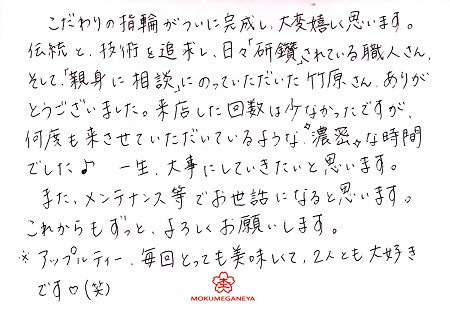 こだわりの指輪がついに完成し、大変嬉しく思います。
伝統と、技術を追求し、日々「研鑽」されている職人さん、
そして、「親身に相談」にのっていただいた竹原さん、ありが
とうございました。来店した回数は少なかったですが、
何度も来させていただいているような、✧濃密✧な時間
でした♪ 一生、大事にしていきたいと思います。
また、メンテナンス等でお世話になると思います。
これからもずっと、よろしくお願いします。
※アップルティー、毎回とっても美味しくて、2人とも大好き
です♡(笑)
MOKUMEGANEYA